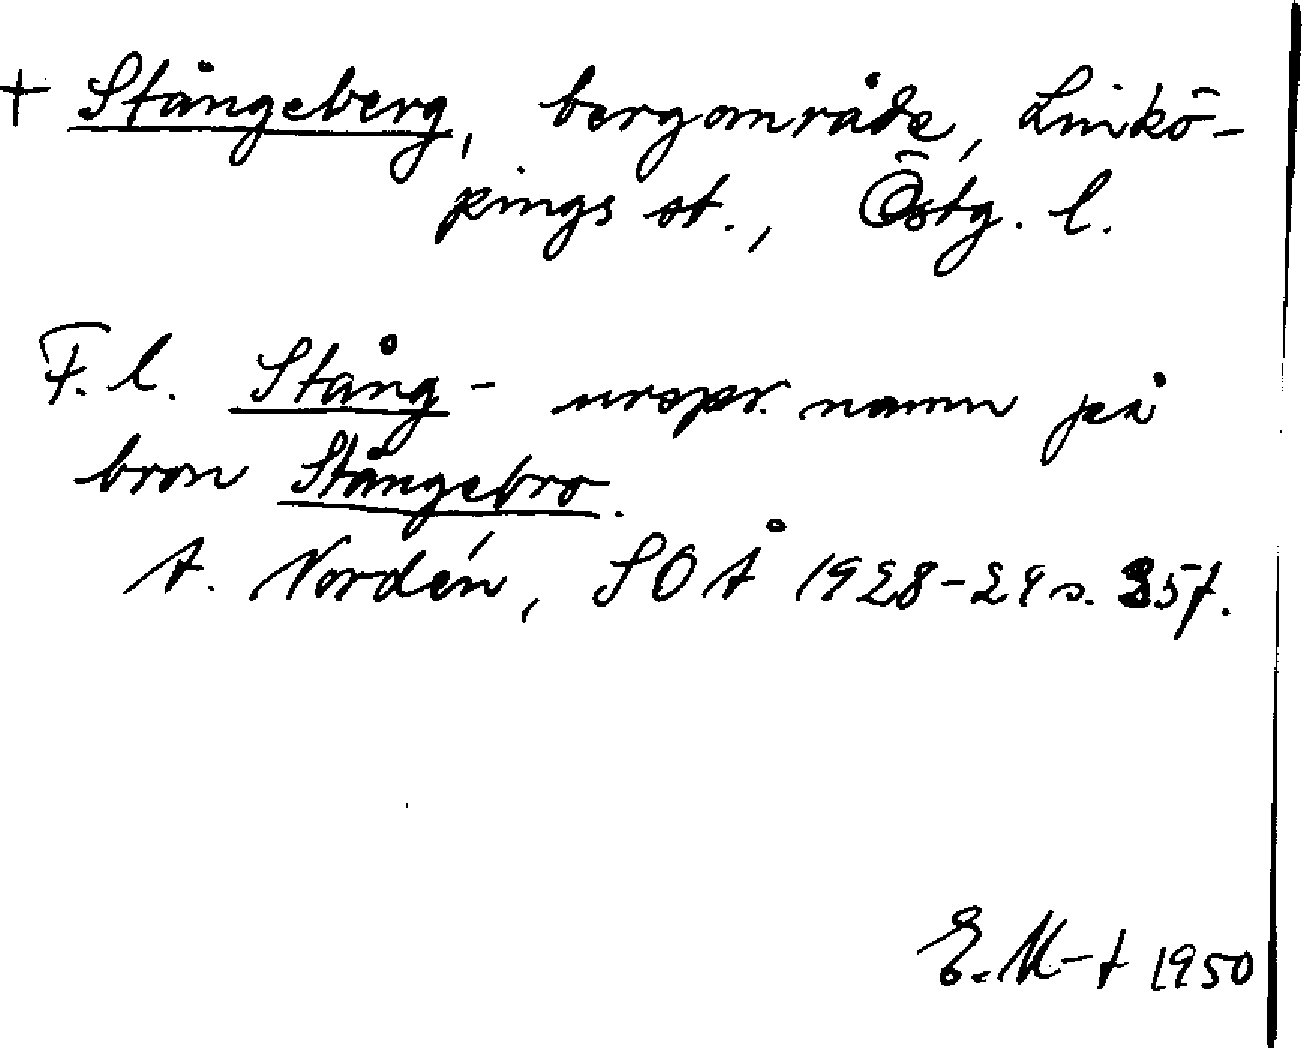 + Stångeberg, bergområde, Linkö-
pings st., Östg. l.
F.l. Stång- urspr. namn på
bron Stångebro.
A. Nordén, SOÅ 1928-29 s. 35f.
E. M-t 1950